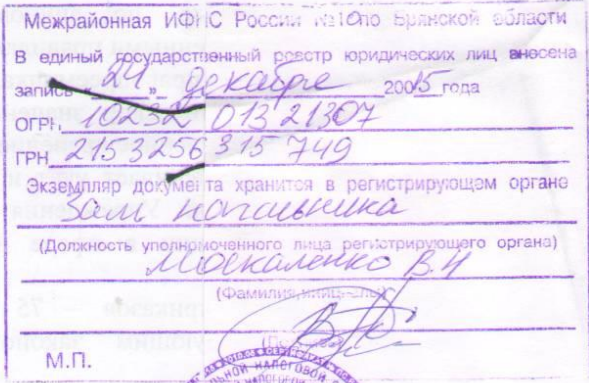 Межрайонная ИФНС России №10 по Брянской области
В единый государственный реестр юридических лиц внесена
запись «24» декабря 2015 года
ОГРН 1023201321307
ГРН 2153256315749
Экземпляр документа хранится в регистрирующем органе
Зам начальника
(Должность уполномоченного лица регистрирующего органа)
Москаленко В.Н
(Фамилия, инициалы)
(Подпись)
М.П.
приказов 75
ующим законо